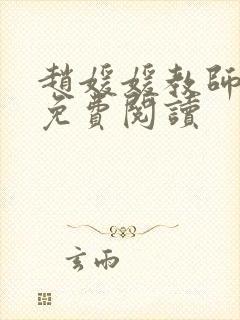 趙媛媛教師
免費閱讀
玄雨